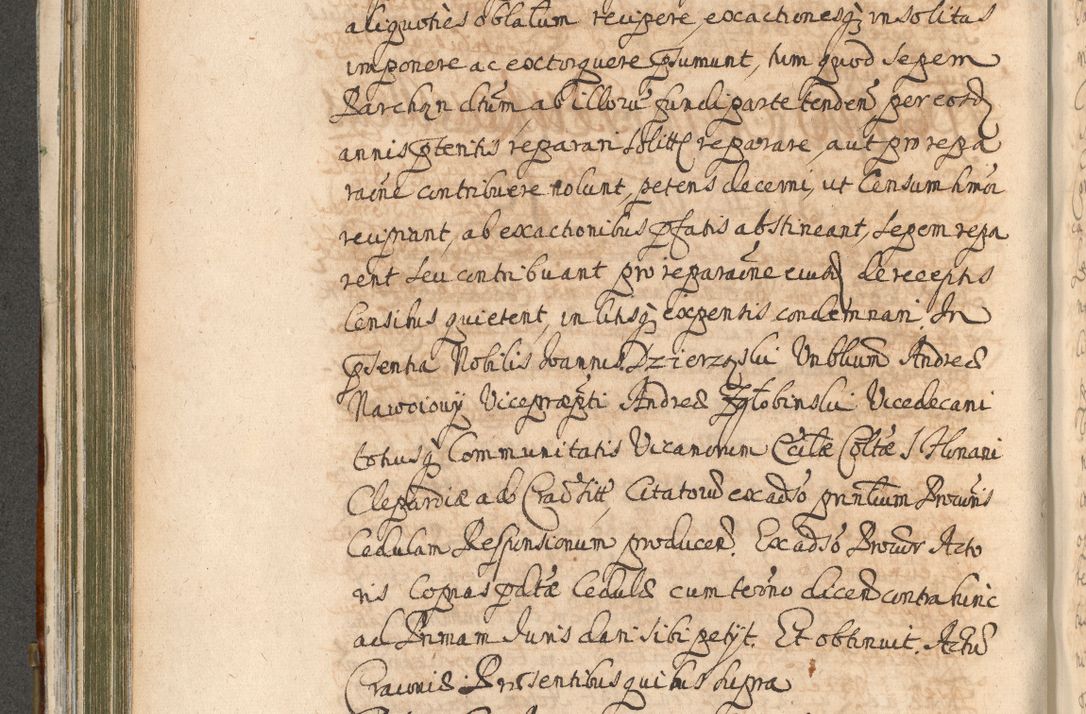 aliquoties oblatum recipere, exactionesq insolitas
imponere ac extorquere psumunt, tum quod Segem
Parchan dtum, ab illoru fundi parte tenden per eosd
annis ptentis reparari solitt reparare, aut pro repa
raone contribuere nolunt, petens decerni, ut Censum hmoi
recipiant, ab exactionibus pfatis abstineant, Segem repa
rent seu contribuant pro reparaone eiusd de receptis
Censibus quietent, in litisq expentis condemnari. In
psentia Nobilis Joannis Dzierzqski Vnblium Andreæ
Nawoiowy Vicepræpti Andreæ Zglobinski Vicedecani
totiusq Communitatis Vicanorum Ecclæ Coltæ S Floriani
Clepardiæ ad Crac sitt Citatoru ex adso prntium Procuris
Cedulam Responsionum producen. Ex adso Procur Acto
ris Copias pdtæ Cedulæ cum termo dicen contra hinc
ad Primam Juris dari sibi petijt. Et obtinuit. Actu
Cracoviæ Præsentibus quibus supra